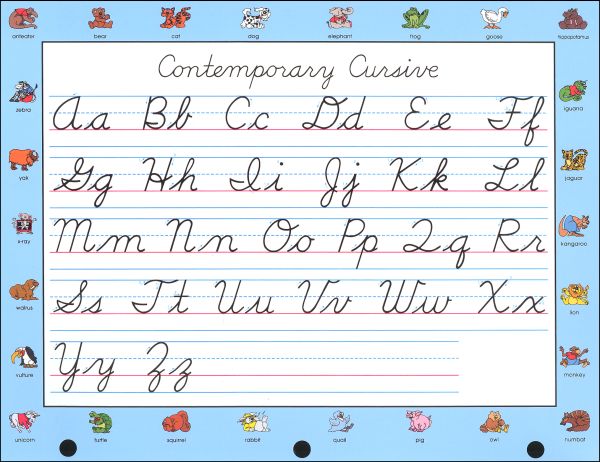 anteater bear cat dog elephant frog goose hippopotamus
Contemporary Cursive
Aa Bb Cc Dd Ee Ff
Gg Hh Ii Jj Kk Ll
Mm Nn Oo Pp Qq Rr
Ss Tt Uu Vv Ww Xx
Yy Zz
zebra
yak
x-ray
walrus
vulture
iguana
jaguar
kangaroo
lion
monkey
unicorn turtle squirrel rabbit quail pig owl numbat